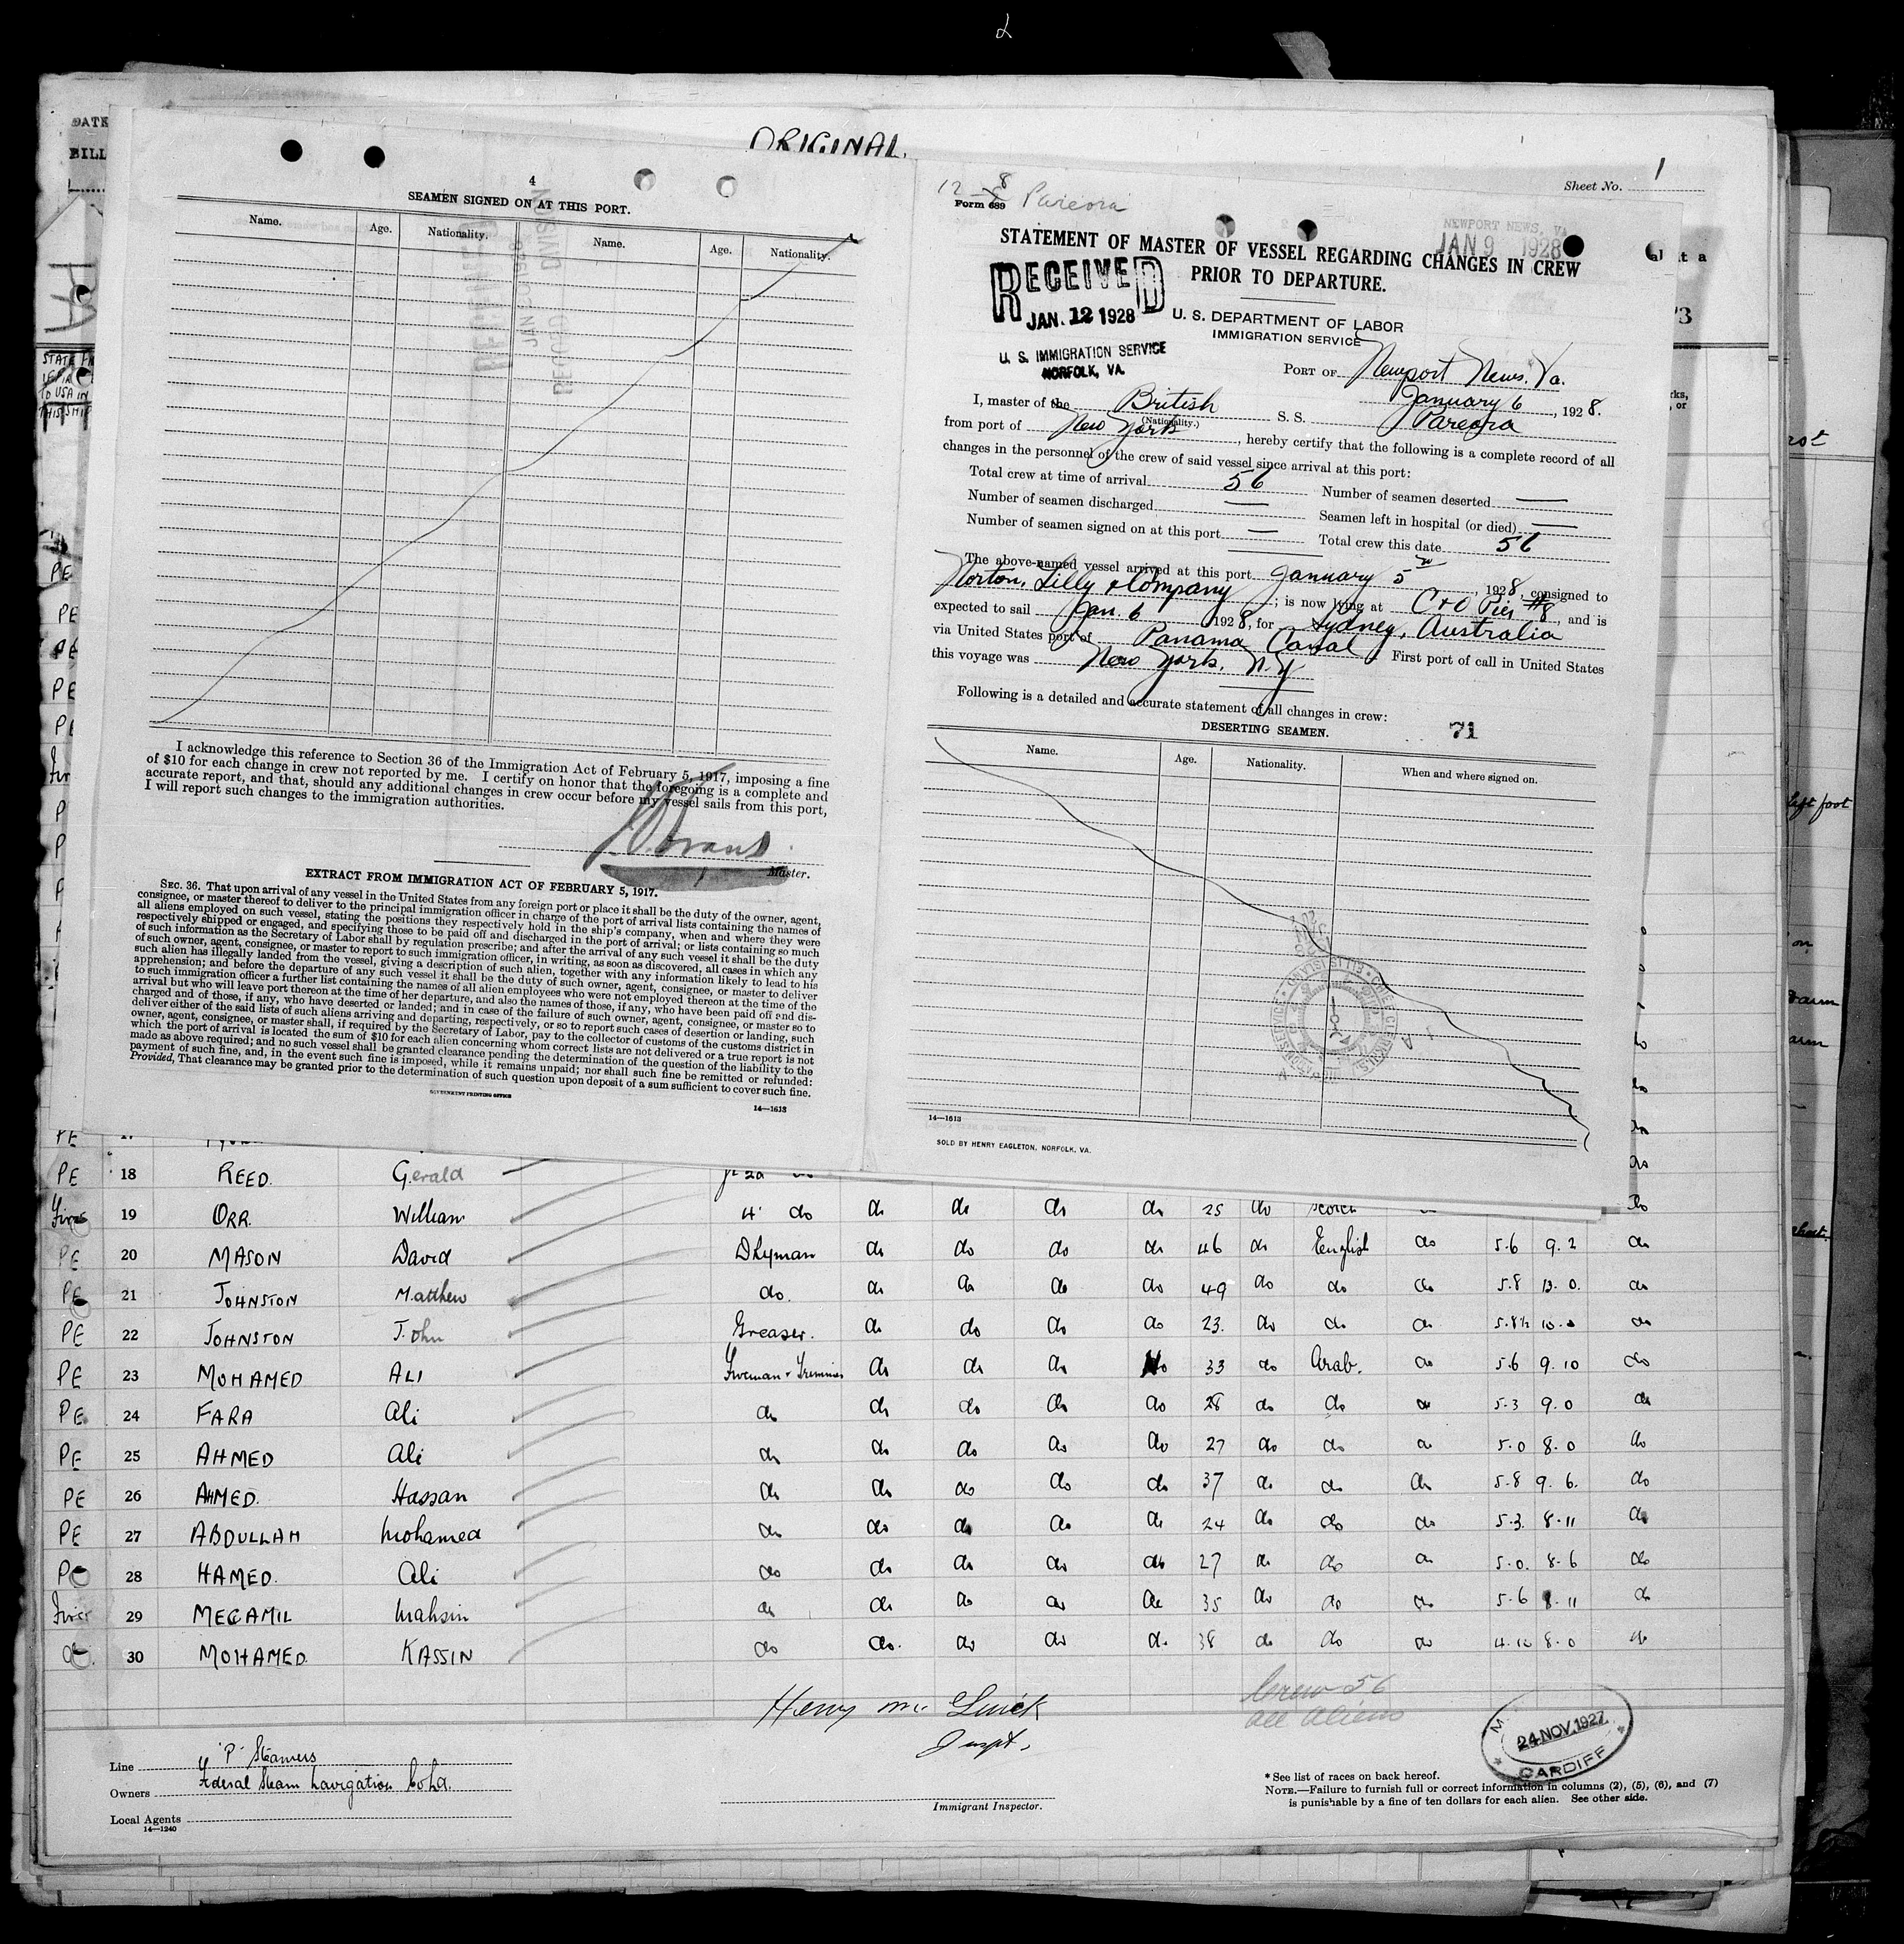 2
ORIGINAL.
DATE
BILL
4
SEAMEN SIGNED ON AT THIS PORT.
Name. Age. Nationality. Name. Age. Nationality.
I acknowledge this reference to Section 36 of the Immigration Act of February 5, 1917, imposing a fine
of $10 for each change in crew not reported by me. I certify on honor that the foregoing is a complete and
accurate report, and that, should any additional changes in crew occur before my vessel sails from this port,
I will report such changes to the immigration authorities.
Master.
EXTRACT FROM IMMIGRATION ACT OF FEBRUARY 5, 1917.
SEC. 36. That upon arrival of any vessel in the United States from any foreign port or place it shall be the duty of the owner, agent,
consignee, or master thereof to deliver to the principal immigration officer in charge of the port of arrival lists containing the names of
all aliens employed on such vessel, stating the positions they respectively hold in the ship's company, when and where they were
respectively shipped or engaged, and specifying those to be paid off and discharged in the port of arrival; or lists containing so much
of such information as the Secretary of Labor shall by regulation prescribe; and after the arrival of any such vessel it shall be the duty
of such owner, agent, consignee, or master to report to such immigration officer, in writing, as soon as discovered, all cases in which any
such alien has illegally landed from the vessel, giving a description of such alien, together with any information likely to lead to his
apprehension; and before the departure of any such vessel it shall be the duty of such owner, agent, consignee, or master to deliver
to such immigration officer a further list containing the names of all alien employees who were not employed thereon at the time of the
arrival but who will leave port thereon at the time of her departure, and also the names of those, if any, who have been paid off and dis-
charged and of those, if any, who have deserted or landed; and in case of the failure of such owner, agent, consignee, or master so to
deliver either of the said lists of such aliens arriving and departing, respectively, or so to report such cases of desertion or landing, such
owner, agent, consignee, or master shall, if required by the Secretary of Labor, pay to the collector of customs of the customs district in
which the port of arrival is located the sum of $10 for each alien concerning whom correct lists are not delivered or a true report is not
made as above required; and no such vessel shall be granted clearance pending the determination of the question of the liability to the
payment of such fine, and, in the event such fine is imposed, while it remains unpaid; nor shall such fine be remitted or refunded:
Provided, That clearance may be granted prior to the determination of such question upon deposit of a sum sufficient to cover such fine.
GOVERNMENT PRINTING OFFICE
14—1613
Sheet No. 1
12 8 Pareora
Form 689
NEWPORT NEWS, VA.
JAN 9 1928
STATEMENT OF MASTER OF VESSEL REGARDING CHANGES IN CREW
PRIOR TO DEPARTURE.
RECEIVED
JAN. 12 1928
U. S. IMMIGRATION SERVICE
NORFOLK, VA.
U. S. DEPARTMENT OF LABOR
IMMIGRATION SERVICE
PORT OF Newport News, Va.
January 6, 1928.
I, master of the British S. S. Pareora
(Nationality.)
from port of New York, hereby certify that the following is a complete record of all
changes in the personnel of the crew of said vessel since arrival at this port:
Total crew at time of arrival 56 Number of seamen deserted —
Number of seamen discharged — Seamen left in hospital (or died) —
Number of seamen signed on at this port — Total crew this date 56
The above-named vessel arrived at this port January 5, 1928, consigned to
Norton, Lilly & Company; is now lying at C & O Pier #8, and is
expected to sail Jan. 6 1928, for Sydney, Australia
via United States port of Panama Canal First port of call in United States
this voyage was New York, N.Y
Following is a detailed and accurate statement of all changes in crew:
71
DESERTING SEAMEN.
Name. Age. Nationality. When and where signed on.
14—1613
SOLD BY HENRY EAGLETON, NORFOLK, VA.
PE 18 REED. Gerald
19 ORR. William 4' do do do do do 25 do
PE 20 MASON David Dkyman do do do do 46 do English do 5.6 9.2 do
PE 21 JOHNSTON Matthew do. do do do do 49 do do do 5.8 13.0. do
PE 22 JOHNSTON John Greaser. do do do do 23. do do do 5.8½ 10.0 do
PE 23 MOHAMED ALI Fireman & Trimmer do do do No 33 do Arab. do 5.6 9.10 do
PE 24 FARA Ali do do do do do 28 do do do 5.3 9.0 do
PE 25 AHMED Ali do do do do do 27 do do do 5.0 8.0 do
PE 26 AHMED. Hassan do do do do do 37 do do do 5.8 9.6. do
PE 27 ABDULLAH Mohamed do do do do do 24 do do do 5.3. 8.11 do
PE 28 HAMED. Ali do do do do do 27 do do do 5.0. 8.6 do
29 MEGAMIL Mahsin do do do do do 35 do do do 5.6 8.11 do
do. 30 MOHAMED. KASSIN do do. do do do 38 do do do 4.10 8.0 do
Crew 56
all Aliens
Inspt.
24 NOV. 1927
CARDIFF
Line "P" Steamers
Owners Federal Steam Navigation Co Ld.
Local Agents
14—1240
Immigrant Inspector.
* See list of races on back hereof.
NOTE.—Failure to furnish full or correct information in columns (2), (5), (6), and (7)
is punishable by a fine of ten dollars for each alien. See other side.